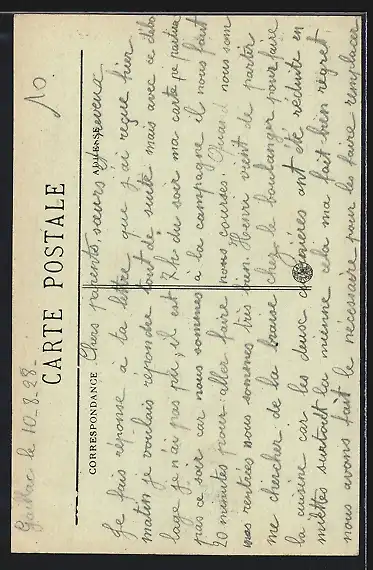 Gaillac le 10-8-28-
10
CARTE POSTALE
CORRESPONDANCE
ADRESSE
Chers parents, sœurs & neveux
Je fais réponse à ta lettre que j'ai reçue hier
matin je voulais répondre tout de suite mais avec ce
lage je n'ai pas pu, il est 7h du soir ma carte
pas ce soir car nous sommes à la campagne il nous faut
20 minutes pour aller faire nos courses. Quand nous som
mes rentrées nous sommes très bien. Henri vient de partir
me chercher de la braise chez le boulanger pour faire
la cuisine car les deux ont été réduite en
miettes surtout la mienne cela ma fait bien regret
nous avons fait le nécessaire pour les faire remplacer